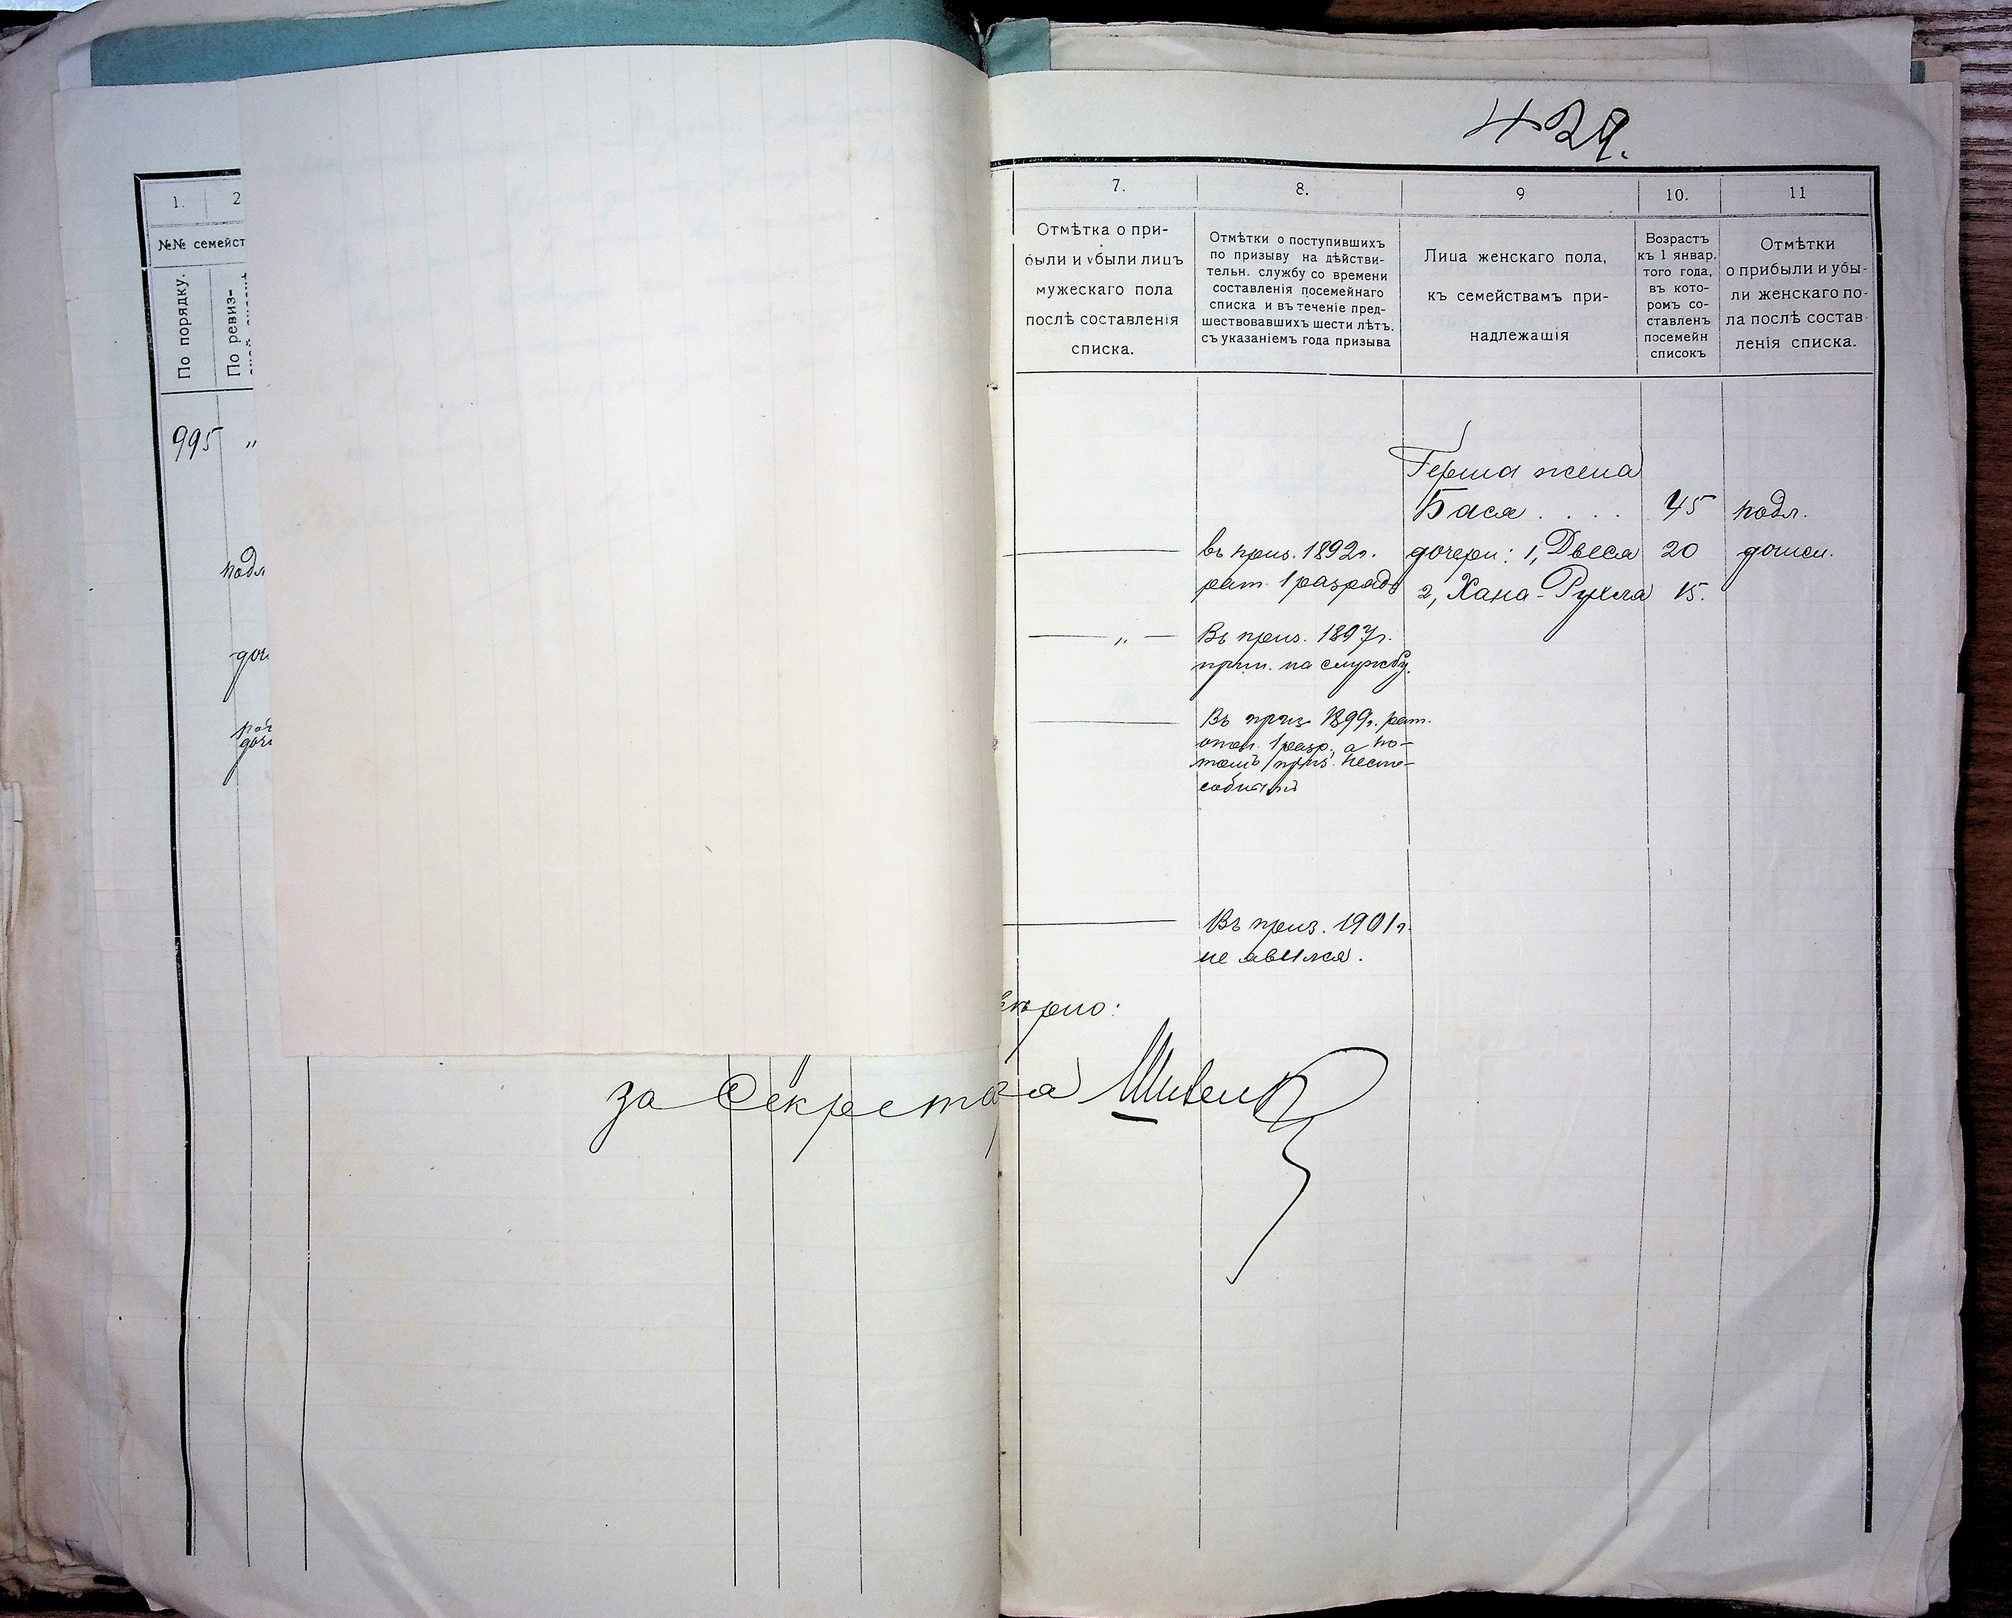 429.
1.
2
№№ семейст
По порядку.
По ревиз-
995 "
подл
поч
7.
8.
9
10.
11
Отмѣтка о при-
были и убыли лицъ
мужескаго пола
послѣ составленія
списка.
Отмѣтки о поступившихъ
по призыву на дѣйстви-
тельн. службу со времени
составленія посемейнаго
списка и въ теченіе пред-
шествовавшихъ шести лѣтъ.
съ указаніемъ года призыва
Лица женскаго пола,
къ семействамъ при-
надлежащія
Возрастъ
къ 1 январ.
того года,
въ кото-
ромъ со-
ставленъ
посемейн
списокъ
Отмѣтки
о прибыли и убы-
ли женскаго по-
ла послѣ состав
ленія списка.
Герша жена
Бася . . . . 45 подл.
въ приз. 1892г. дочери: 1, Двеся 20
рат. 1 разряда 2, Хана-Рухля 15.
"
Въ приз. 1897г.
прин. на службу.
Въ приз 1899г. рат.
опол. 1 разр., а по-
томъ приз. неспо-
собный
Въ приз. 1901г.
не явился.
вѣрно:
за Секретаря